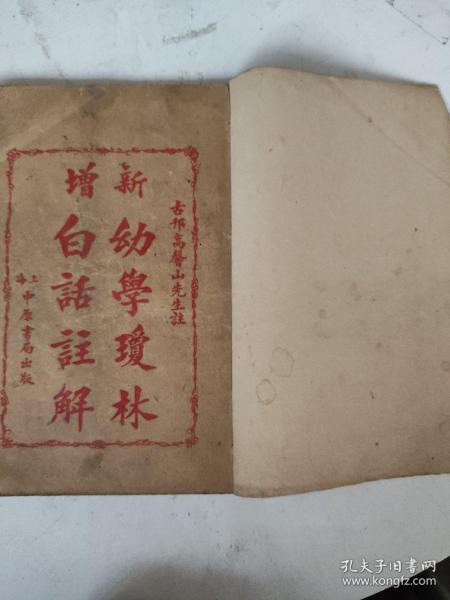 新增
古邗高馨山先生註
幼學瓊林
白話註解
上海中原書局出版
孔夫子旧书网
www.kongfz.com